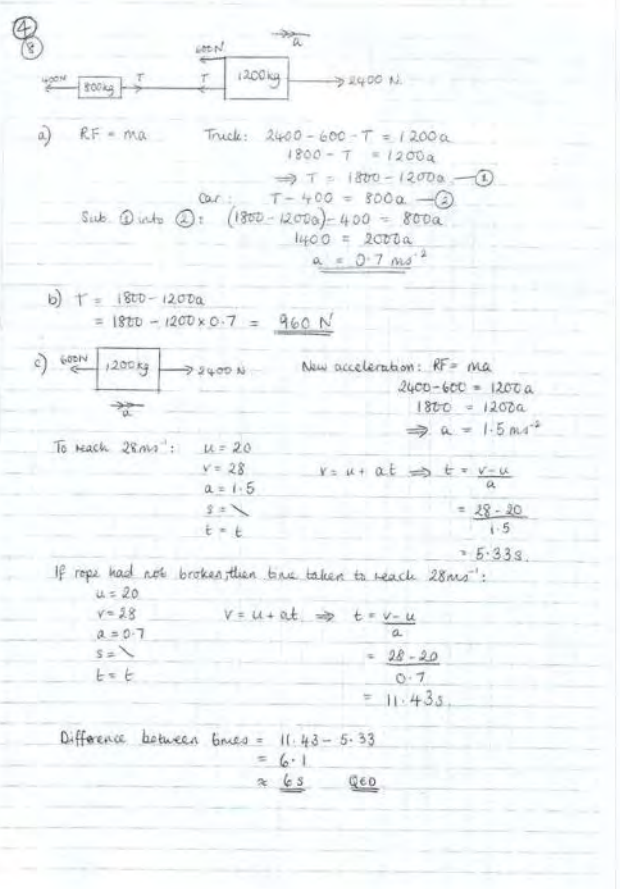 4
8
a
600N
400N 800kg T T 1200kg 2400 N.
a) RF = ma Truck: 2400-600-T = 1200a
1800 - T = 1200a
⇒ T = 1800-1200a —①
Car: T-400 = 800a —②
Sub. ① into ②: (1800-1200a)-400 = 800a
1400 = 2000a
a = 0.7 ms⁻²
b) T = 1800-1200a
= 1800 - 1200×0.7 = 960 N
c) 600N 1200kg 2400 N New acceleration: RF = ma
a 2400-600 = 1200a
1800 = 1200a
⇒ a = 1.5 ms⁻²
To reach 28ms⁻¹: u = 20
v = 28 v = u + at ⇒ t = (v-u)/a
a = 1.5
s = \ = (28-20)/1.5
t = t
= 5.33s.
If rope had not broken, then time taken to reach 28ms⁻¹:
u = 20
v = 28 v = u + at ⇒ t = (v-u)/a
a = 0.7
s = \ = (28-20)/0.7
t = t
= 11.43s.
Difference between times = 11.43 - 5.33
= 6.1
≈ 6s QED